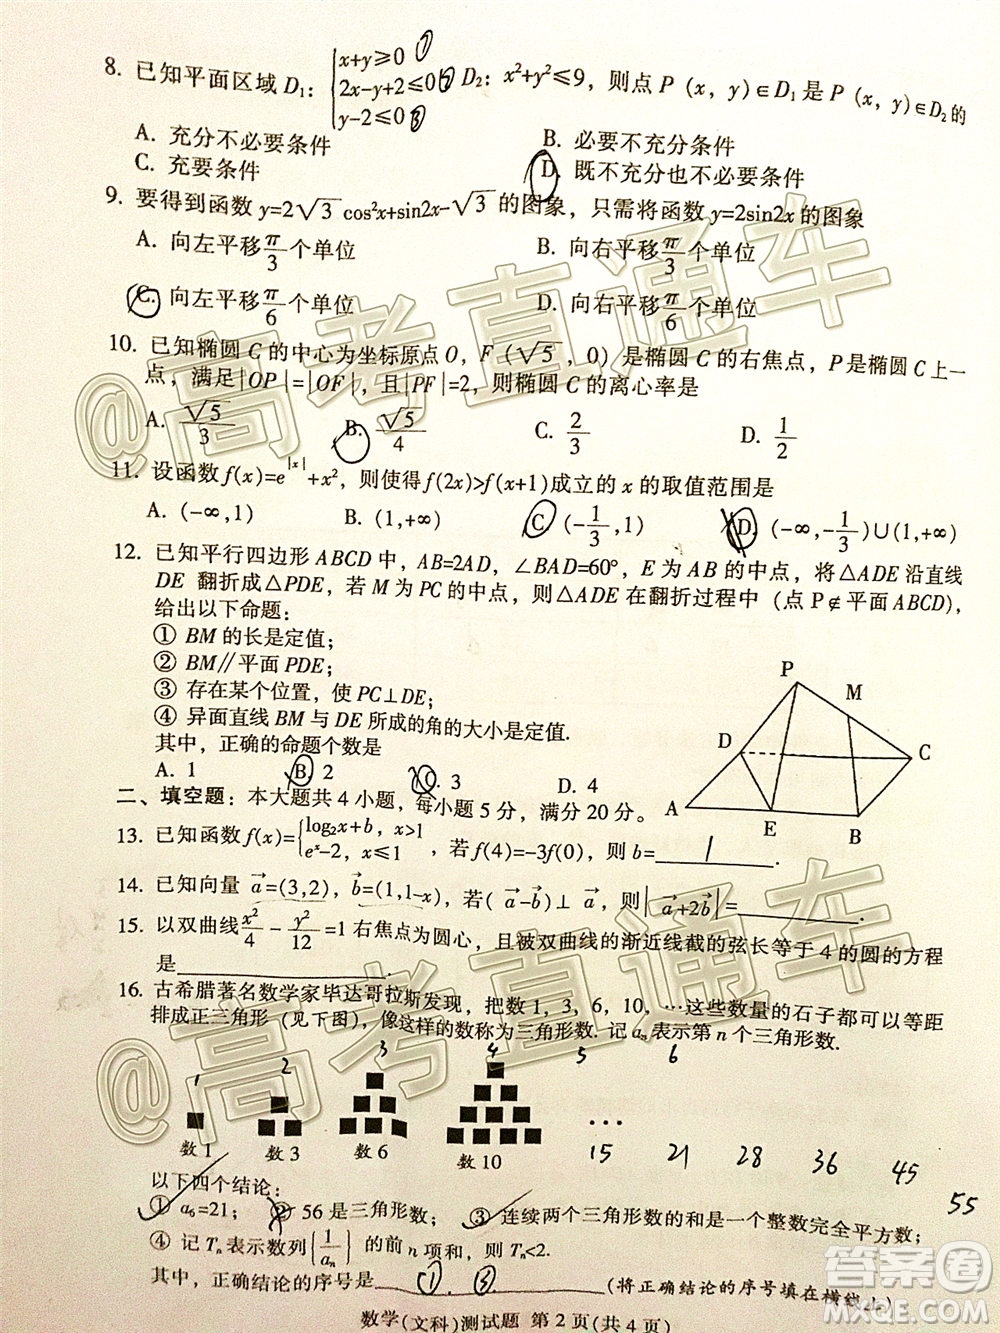 8. 已知平面区域 D₁: { x+y≥0 ①
2x-y+2≤0 ② D₂: x²+y²≤9, 则点 P (x, y)∈D₁ 是 P (x, y)∈D₂ 的
y-2≤0 ③
A. 充分不必要条件 B. 必要不充分条件
C. 充要条件 D. 既不充分也不必要条件
9. 要得到函数 y=2√3cos²x+sin2x-√3 的图象, 只需将函数 y=2sin2x 的图象
A. 向左平移π/3个单位 B. 向右平移π/3个单位
C. 向左平移π/6个单位 D. 向右平移π/6个单位
10. 已知椭圆 C 的中心为坐标原点 O, F (√5, 0) 是椭圆 C 的右焦点, P 是椭圆 C 上一
点, 满足|OP|=|OF|, 且|PF|=2, 则椭圆 C 的离心率是
A. √5/3 B. √5/4 C. 2/3 D. 1/2
11. 设函数 f(x)=e^|x|+x², 则使得 f(2x)>f(x+1)成立的 x 的取值范围是
A. (-∞,1) B. (1,+∞) C (-1/3,1) D. (-∞,-1/3)∪(1,+∞)
12. 已知平行四边形 ABCD 中, AB=2AD, ∠BAD=60°, E 为 AB 的中点, 将△ADE 沿直线
DE 翻折成△PDE, 若 M 为 PC 的中点, 则△ADE 在翻折过程中 (点 P∉平面 ABCD),
给出以下命题:
① BM 的长是定值;
② BM∥平面 PDE;
③ 存在某个位置, 使 PC⊥DE;
④ 异面直线 BM 与 DE 所成的角的大小是定值.
其中, 正确的命题个数是
A. 1 B. 2 C. 3 D. 4
P
M
D
C
A
E
B
二、填空题: 本大题共 4 小题, 每小题 5 分, 满分 20 分。
13. 已知函数 f(x)={ log₂x+b, x>1
eˣ-2, x≤1 , 若 f(4)=-3f(0), 则 b=___1___
14. 已知向量 a→=(3,2), b→=(1,1-x), 若(a→-b→)⊥a→, 则|a→+2b→|=________
15. 以双曲线x²/4 - y²/12=1 右焦点为圆心, 且被双曲线的渐近线截的弦长等于 4 的圆的方程
是____________
16. 古希腊著名数学家毕达哥拉斯发现, 把数 1, 3, 6, 10, …这些数量的石子都可以等距
排成正三角形 (见下图), 像这样的数称为三角形数. 记 aₙ表示第 n 个三角形数.
1 2 3 4 5 6
…
数 1 数 3 数 6 数 10 15 21 28 36 45 55
以下四个结论:
① a₆=21; ② 56 是三角形数; ③ 连续两个三角形数的和是一个整数完全平方数;
④ 记 Tₙ表示数列{1/aₙ}的前 n 项和, 则 Tₙ<2.
其中, 正确结论的序号是 ① ③ (将正确结论的序号填在横线上)
数学(文科)测试题 第 2 页(共 4 页)
@高考直通车
@高考直通车
答案圈
MXQE.COM